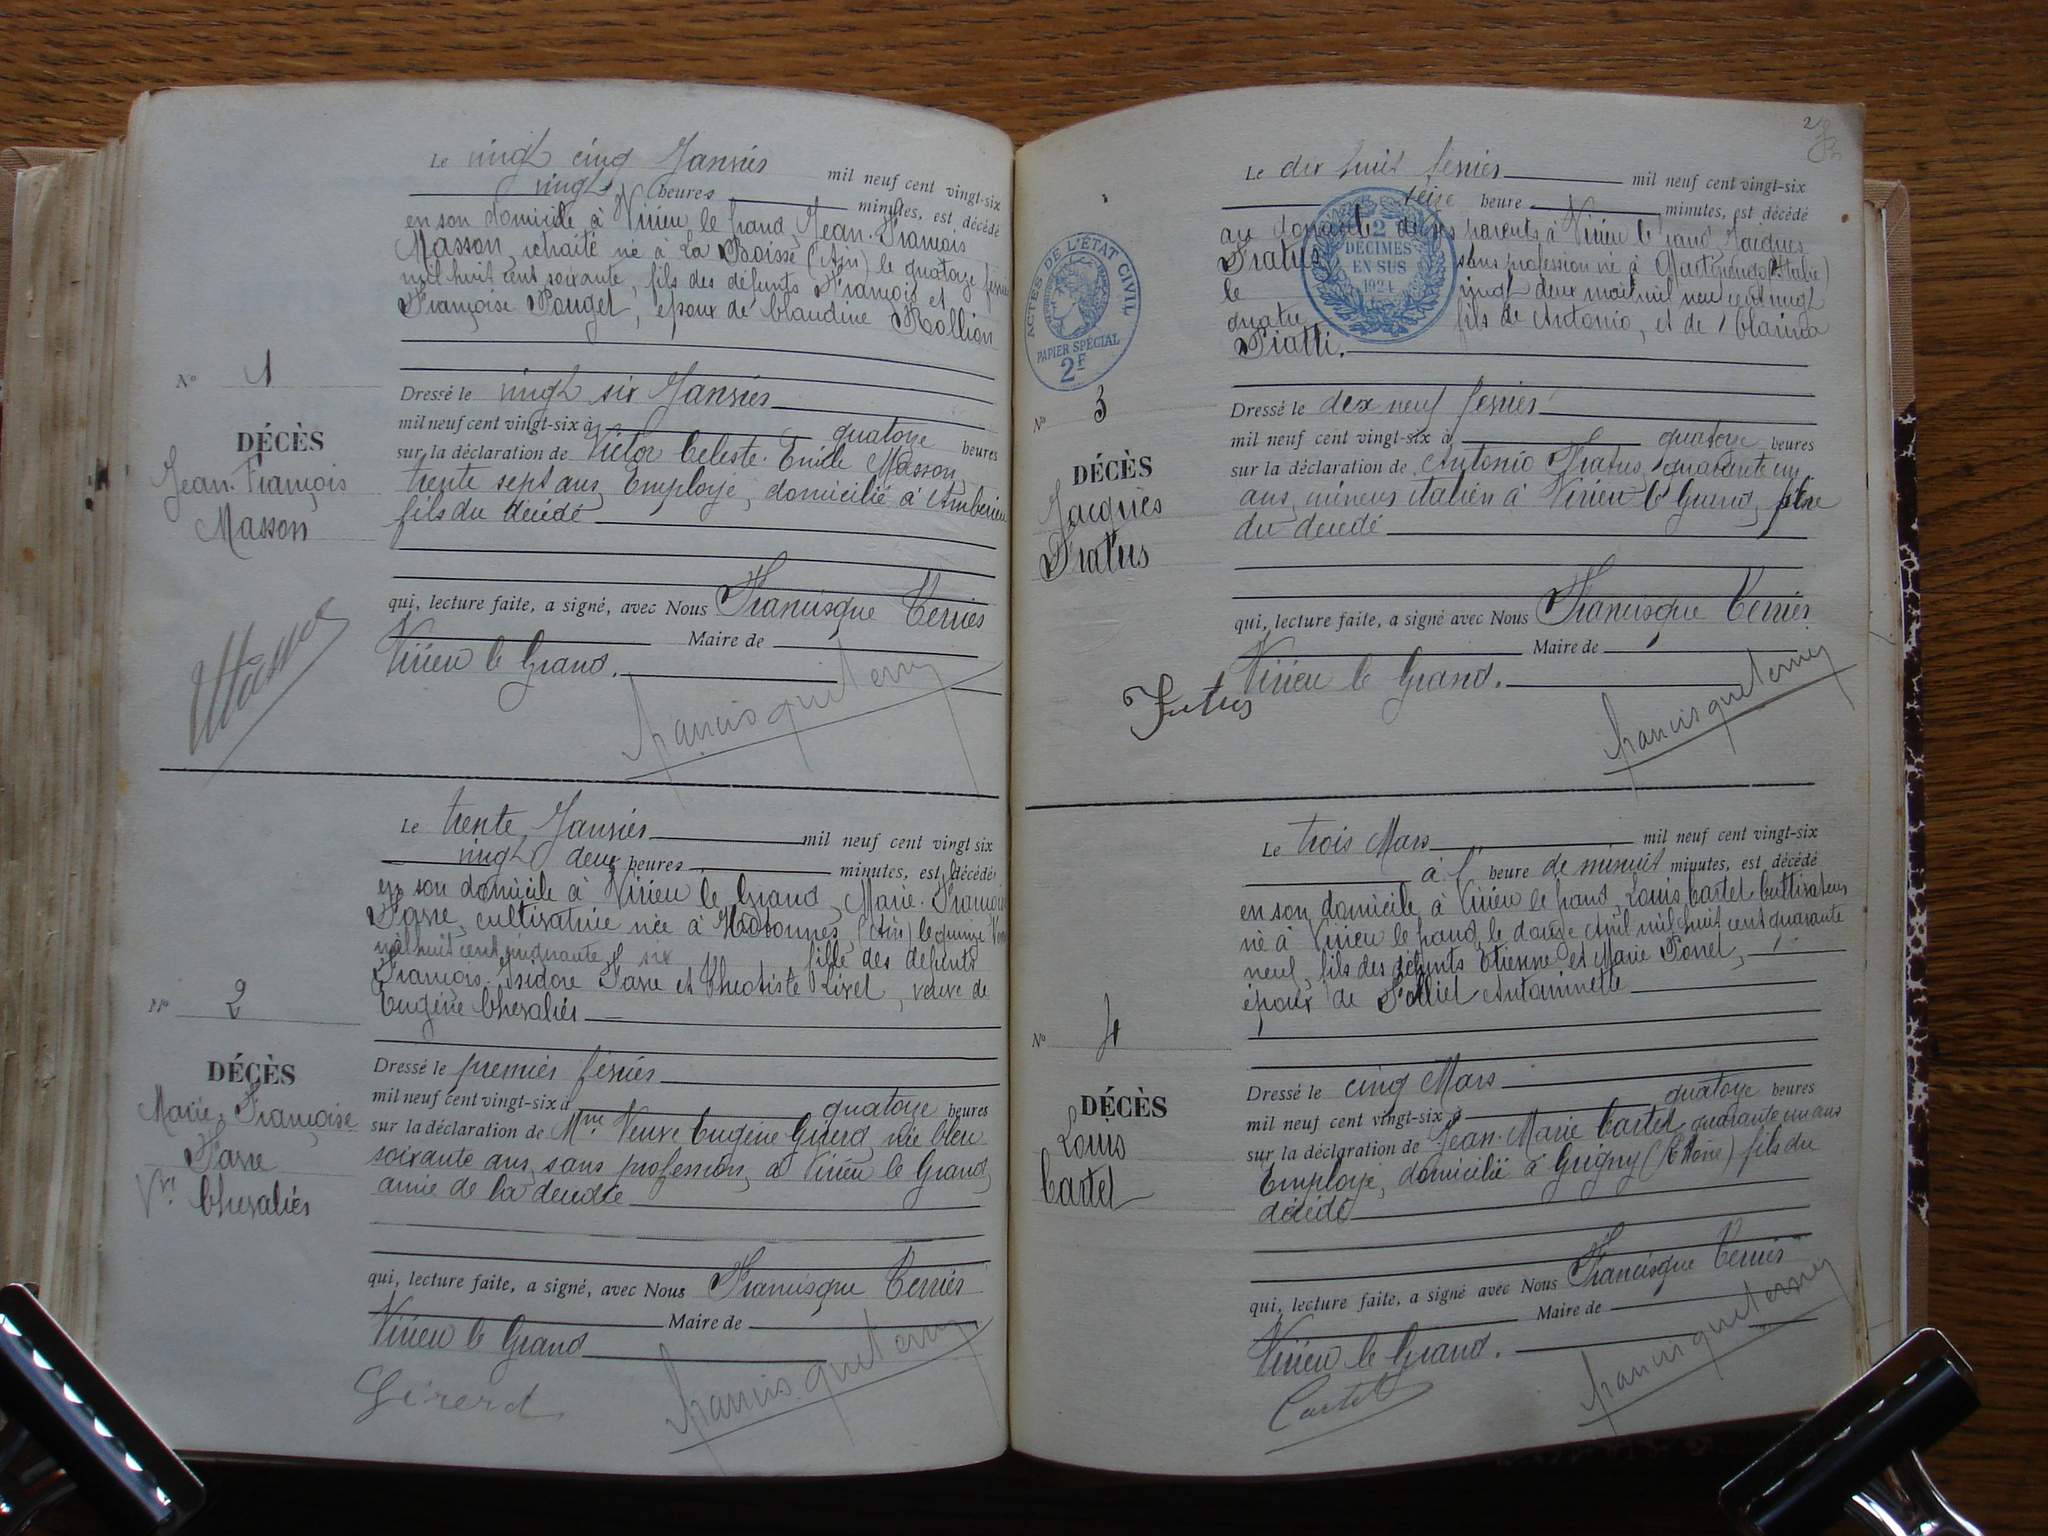 Le vingt cinq Janvier mil neuf cent vingt-six
vingt heures minutes, est décédé
en son domicile à Virieu le Grand, Jean-François
Masson, retraité né à La Boisse (Ain) le quatorze février
mil huit cent soixante, fils des défunts François et
Françoise Pouget, époux de Claudine Rollion
N° 1
DÉCÈS
Jean-François
Masson
Dressé le vingt six Janvier
mil neuf cent vingt-six à quatorze heures
sur la déclaration de Victor Celeste Emile Masson,
trente sept ans, Employé, domicilié à Ambérieu
fils du décédé
qui, lecture faite, a signé, avec Nous Francisque Terrier
Maire de
Virieu le Grand.
Masson
Francisque Terrier
Le trente Janvier mil neuf cent vingt six
vingt deux heures minutes, est décédé
en son domicile à Virieu le Grand, Marie-Françoise
Favre, cultivatrice née à Hotonnes, (Ain) le quinze
mil huit cent cinquante six fille des défunts
François-Isidore Favre et Théotiste Livet, veuve de
Eugène Chevalier
N° 2
DÉCÈS
Marie-Françoise
Favre
Vve
Chevalier
Dressé le premier février
mil neuf cent vingt-six à quatorze heures
sur la déclaration de Mme Veuve Eugène Girerd, née
soixante ans, sans profession, à Virieu le Grand,
amie de la décédée
qui, lecture faite, a signé, avec Nous Francisque Terrier
Maire de
Virieu le Grand
Girerd
Francisque Terrier
2
Le dix huit février mil neuf cent vingt-six
seize heure minutes, est décédé
au domicile de ses parents à Virieu le Grand, Jacques
Fratus sans profession né à (Italie)
le vingt deux mai mil neuf cent vingt
quatre fils de Antonio, et de Clarina
Piatti.
ACTES DE L'ÉTAT CIVIL
PAPIER SPÉCIAL
2F
2
DÉCIMES
EN SUS
1924
N° 3
DÉCÈS
Jacques
Fratus
Dressé le dix neuf février
mil neuf cent vingt-six à quatorze heures
sur la déclaration de Antonio Fratus, quarante un
ans, mineur italien à Virieu le Grand, père
du décédé
qui, lecture faite, a signé avec Nous Francisque Terrier
Maire de
Virieu le Grand.
Fratus
Francisque Terrier
Le trois Mars mil neuf cent vingt-six
à l' heure de minuit minutes, est décédé
en son domicile à Virieu le Grand, Louis Cartet Cultivateur
né à Virieu le Grand, le douze Avril mil huit cent quarante
neuf, fils des défunts Etienne et Marie Ponet,
époux de Antoninette
N° 4
DÉCÈS
Louis
Cartet
Dressé le cinq Mars
mil neuf cent vingt-six à quatorze heures
sur la déclaration de Jean-Marie Cartet, quarante un ans
Employé, domicilié à Grigny (Rhône) fils du
décédé
qui, lecture faite, a signé avec Nous Francisque Terrier
Maire de
Virieu le Grand.
Cartet
Francisque Terrier